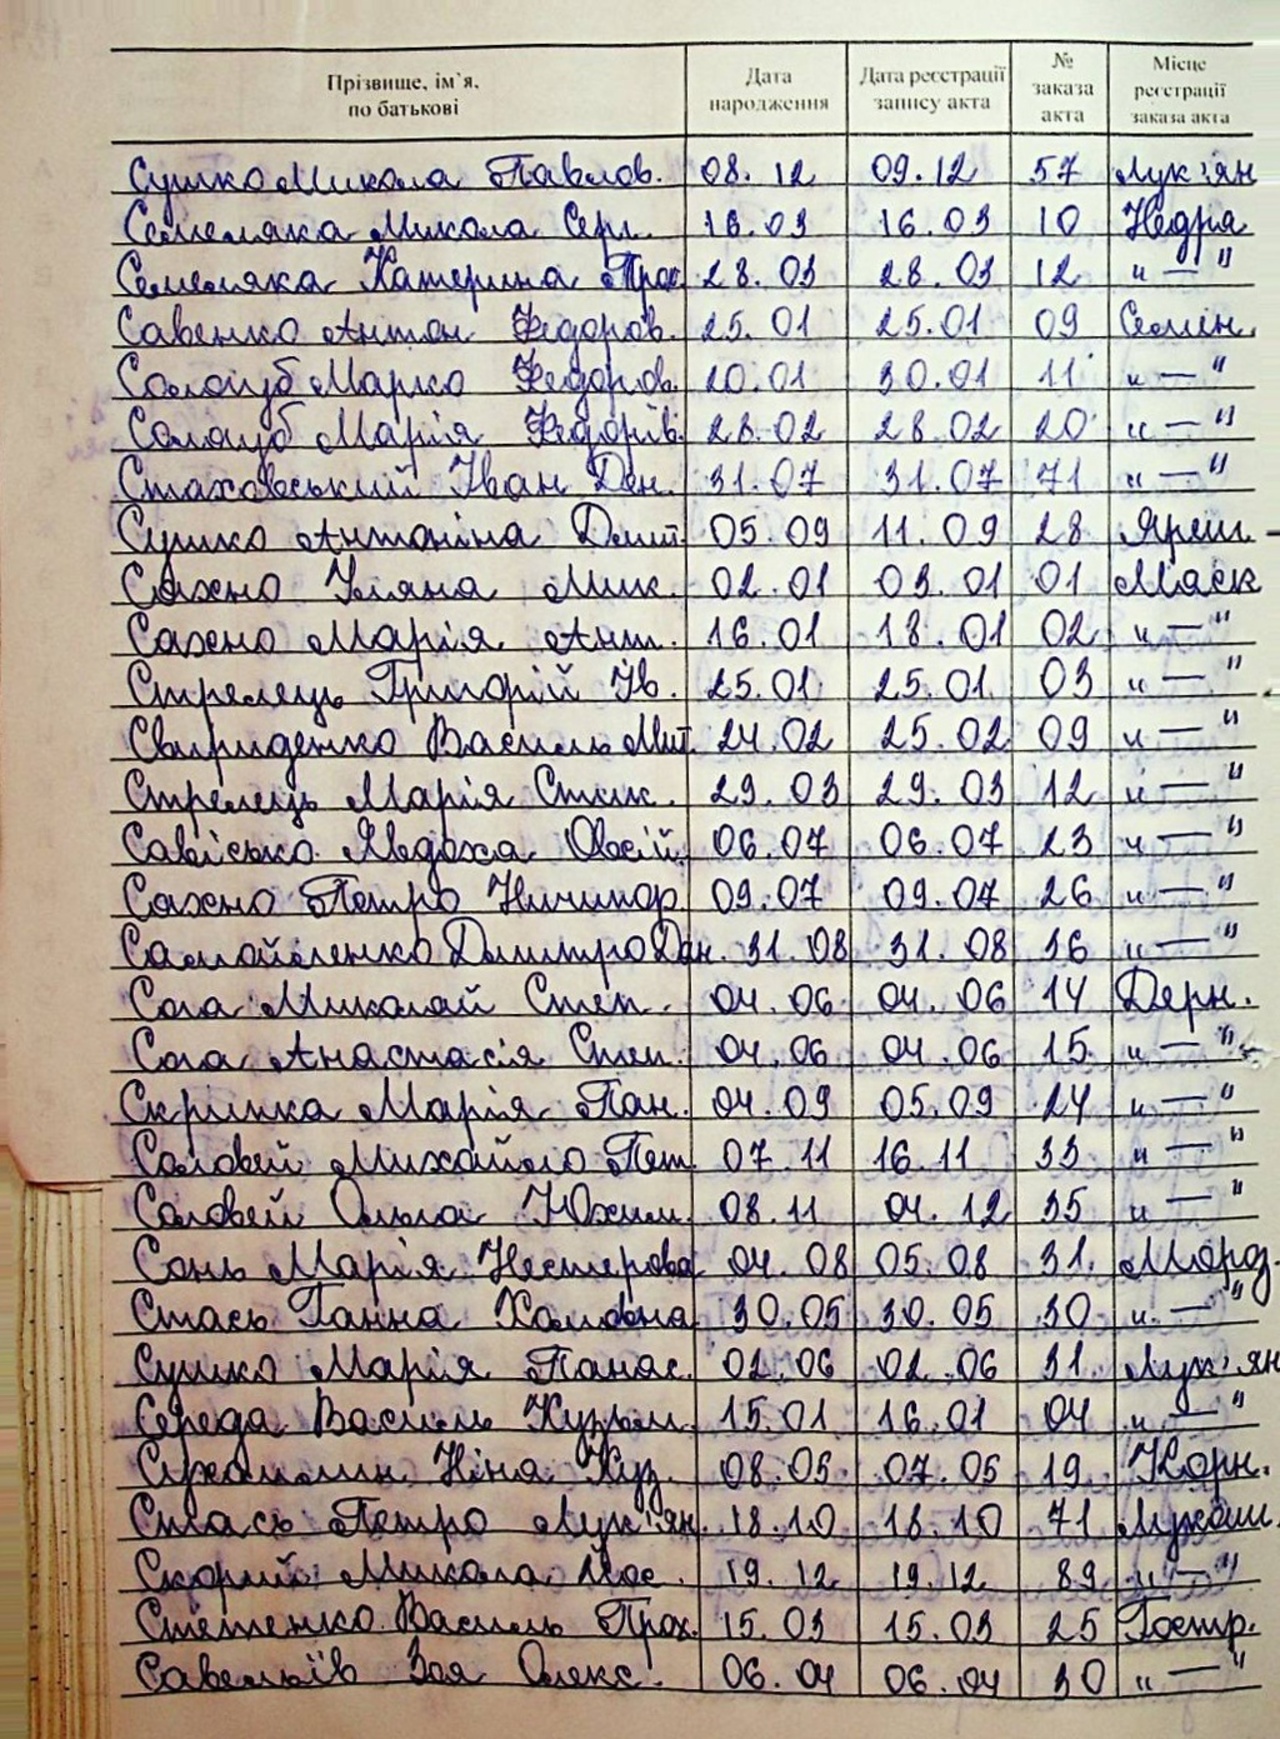 Прізвище, ім`я, по батькові Дата народження Дата реєстрації запису акта № заказа акта Місце реєстрації заказа акта
Сушко Микола Павлов. 08.12 09.12 57 Лук'ян
Семеляка Микола Серг. 16.03 16.03 10 Недря
Семеляка Катерина Прох. 28.03 28.03 12 " — "
Савенко Антон Федоров. 25.01 25.01 09 Семен.
Солоуб Марко Федоров. 20.01 30.01 11 " — "
Солоуб Марія Федорів. 28.02 28.02 20 " — "
Стаховський Іван Дан. 31.07 31.07 71 " — "
Сушко Антоніна Дмит. 05.09 11.09 28 Яреш. -
Сахно Уляна Мик. 02.01 03.01 01 Маск
Сахно Марія Ант. 16.01 18.01 02 " — "
Стрелець Григорій Ів. 25.01 25.01 03 " — "
Свириденко Василь Мит. 24.02 25.02 09 " — "
Стрелець Марія 29.03 29.03 12 " — "
Савісько Явдоха Овсій. 06.07 06.07 23 " — "
Сахно Петро Ничипор. 09.07 09.07 26 " — "
Самойленко Дмитро Дан. 31.08 31.08 36 " — "
Сога Миколай Степ. 04.06 04.06 14 Дерн.
Сога Анастасія Степ. 04.06 04.06 15 " — "
Скрипка Марія Пан. 04.09 05.09 24 " — "
Соловей Михайло Пет. 07.11 16.11 33 " — "
Соловей Ольга Юхим. 08.11 04.12 35 " — "
Сонь Марія Нестерова 04.08 05.08 31. Мороз.
Стась Ганна Хомовна 30.05 30.05 30 " — "
Сушко Марія Панас. 02.06 02.06 31. Лук'ян
Середа Василь Кузьм. 15.01 16.01 04 " — "
Сухомлин Ніна Куз. 08.05 07.05 19 Корн.
Стась Петро Лук'ян. 18.10 18.10 71 Лукаш.
Скорий Микола 19.12 19.12 89 " — "
Стетенко Василь Прох. 15.03 15.03 25 Гостр.
Савельїв Зоя Олекс. 06.04 06.04 30 " — "